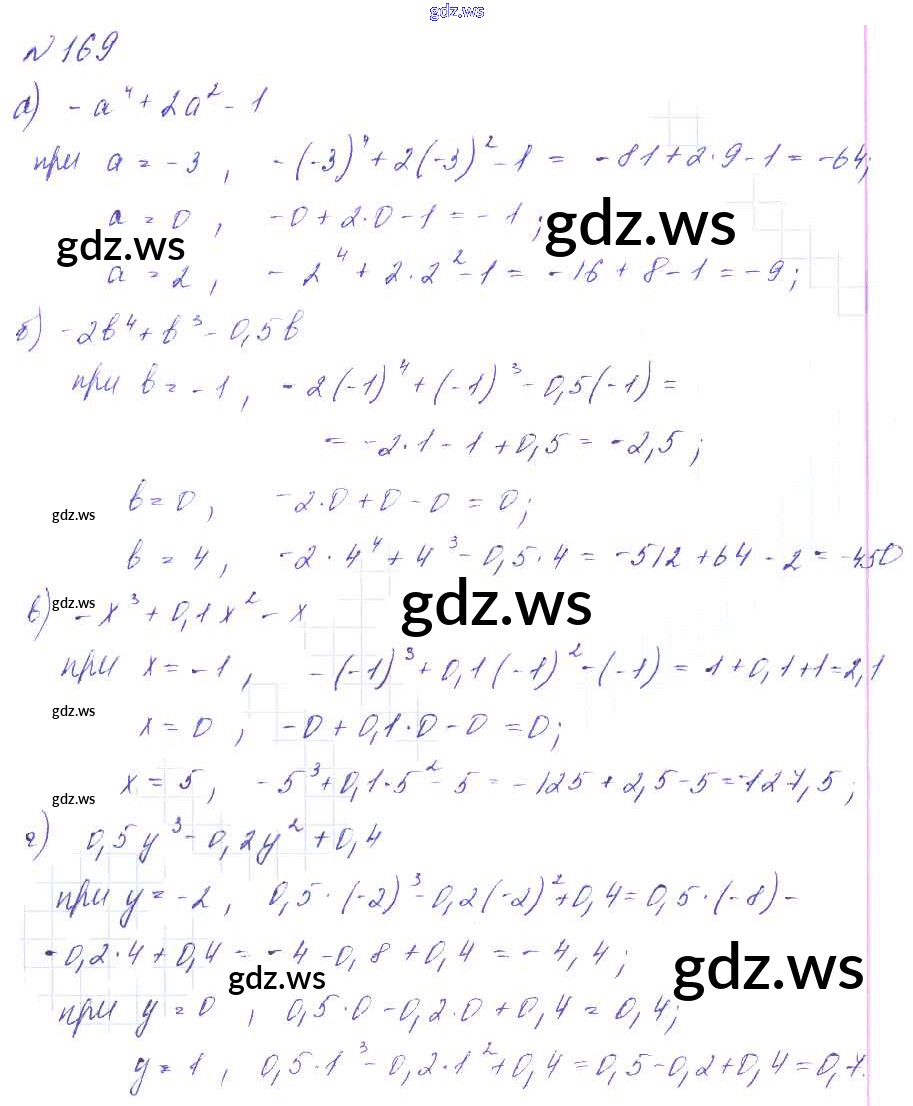 gdz.ws
№ 169
а) -a⁴ + 2a² - 1
при a = -3, -(-3)⁴ + 2(-3)² - 1 = -81 + 2·9 - 1 = -64;
a = 0, -0 + 2·0 - 1 = -1;
gdz.ws
gdz.ws
a = 2, -2⁴ + 2·2² - 1 = -16 + 8 - 1 = -9;
б) -2b⁴ + b³ - 0,5b
при b = -1, -2(-1)⁴ + (-1)³ - 0,5(-1) =
= -2·1 - 1 + 0,5 = -2,5;
b = 0, -2·0 + 0 - 0 = 0;
gdz.ws
b = 4, -2·4⁴ + 4³ - 0,5·4 = -512 + 64 - 2 = -450
gdz.ws
gdz.ws
в) -x³ + 0,1x² - x
при x = -1, -(-1)³ + 0,1(-1)² - (-1) = 1 + 0,1 + 1 = 2,1
gdz.ws
x = 0, -0 + 0,1·0 - 0 = 0;
x = 5, -5³ + 0,1·5² - 5 = -125 + 2,5 - 5 = -127,5;
gdz.ws
г) 0,5y³ - 0,2y² + 0,4
при y = -2, 0,5·(-2)³ - 0,2(-2)² + 0,4 = 0,5·(-8) -
-0,2·4 + 0,4 = -4 - 0,8 + 0,4 = -4,4;
gdz.ws
gdz.ws
при y = 0, 0,5·0 - 0,2·0 + 0,4 = 0,4;
y = 1, 0,5·1³ - 0,2·1² + 0,4 = 0,5 - 0,2 + 0,4 = 0,7.